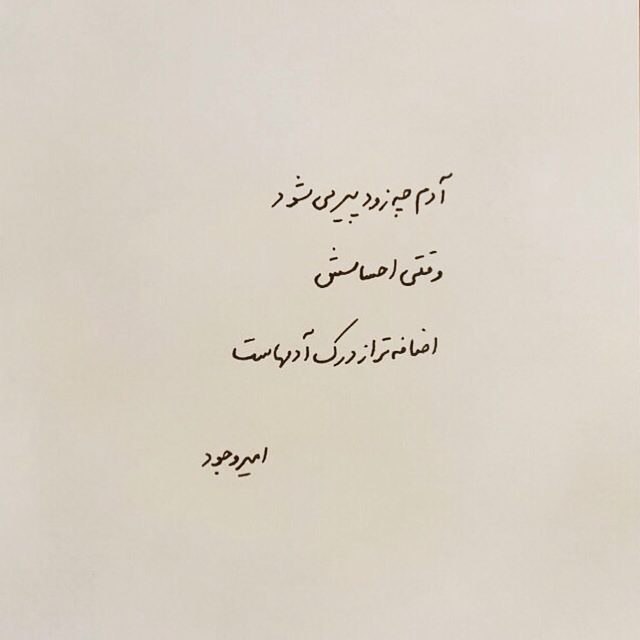 آدم چه زود پیر می شود
وقتی احساسش
اضافه تر از درک آدمهاست
امیر وجود